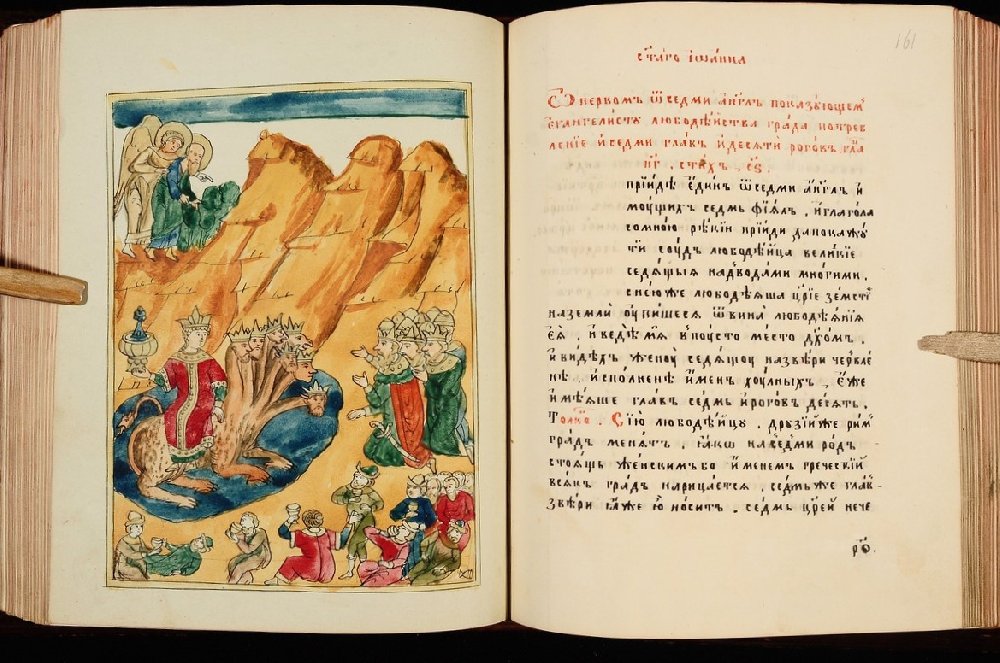 161
ст҃аго іѡа́нна
Ѡ первомъ ѿ седми а́нг҃лъ показꙋющемъ
е҆ѵангелистꙋ любодѣ́йства града потреб
ленїе и҆ седми главъ и҆ десяти роговъ гла
н҃г. стихъ. є҃і.
Прїи́де є҆ди́нъ ѿ седми а́нг҃лъ и҆
моущихъ седмь фїалъ. и҆ глагола
со мною рѣкїи прїиди да покажꙋ
ти соудъ любодѣйца великїе
седѧщыѧ над водами многими.
с нею же любодѣѧша цр҃їе земстї
на земли оупившеся ѿ вина любодѣѧнїѧ
еѧ. и҆ веде мѧ в пꙋсто место дх҃ом.
и҆ видѣхъ женоу седѧщоу на звѣри червле
нѣ и҆сполненѣ и҆менъ хоулныхъ. є҆же
и҆мѣѧше главъ седмь и҆ роговъ десѧть.
Толко. Сїю любодѣйцꙋ. дрꙋзїи же рим
градъ менѧтъ. ꙗкѡ на седми
стоящь женскимъ бо и҆менемъ греческїи
всѧкъ градъ нарицается. седмь же глав
звѣри ю носитъ. седмь цр҃ей нече